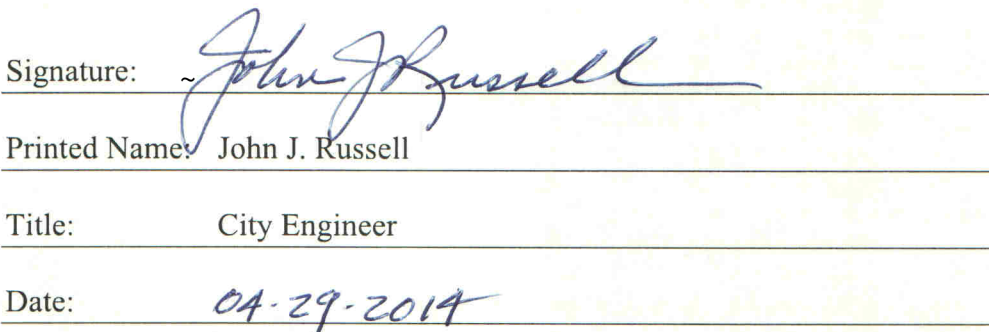 Signature: ~ John J Russell
Printed Name: John J. Russell
Title: City Engineer
Date: 04-29-2014